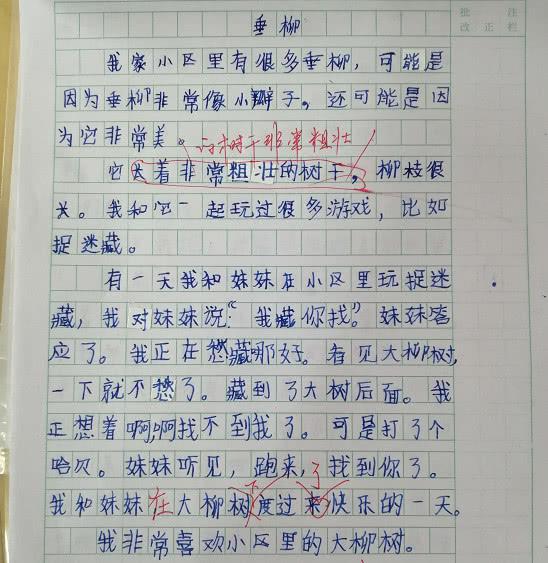 批注
改正栏
垂柳
我家小区里有很多垂柳，可能是
因为垂柳非常像小辫子。还可能是因
为它非常美。
它的树干非常粗壮
它长着非常粗壮的树干，柳枝很
长。我和它一起玩过很多游戏，比如
捉迷藏。
有一天我和妹妹在小区里玩捉迷
藏，我对妹妹说：“我藏你找。”妹妹答
应了。我正在愁藏哪好。看见大柳树，
一下就不愁了。藏到了大树后面。我
正想着啊，啊找不到我了。可是打了个
哈欠。妹妹听见，跑来，了找到你了。
我和妹妹在大柳树下度过来快乐的一天。
我非常喜欢小区里的大柳树。